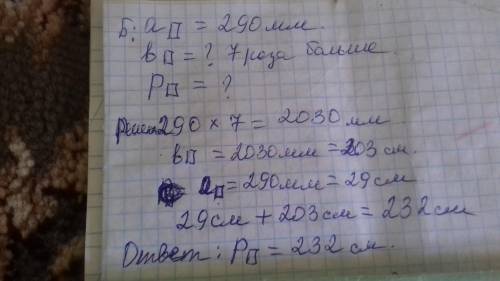 Б: a▯ = 290 мм.
b▯ = ? 7 раза больше.
P▯ = ?
Решен 290 × 7 = 2030 мм
b▯ = 2030 мм = 203 см.
a▯ = 290 мм = 29 см
29 см + 203 см = 232 см
Ответ: P▯ = 232 см.